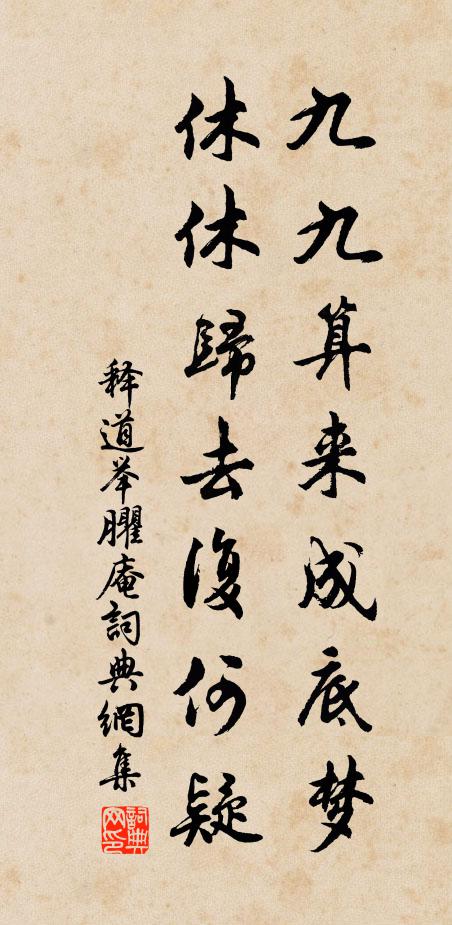 九九算来成底梦
休休歸去復何疑
释道举臞庵詞典網集
詞典网印